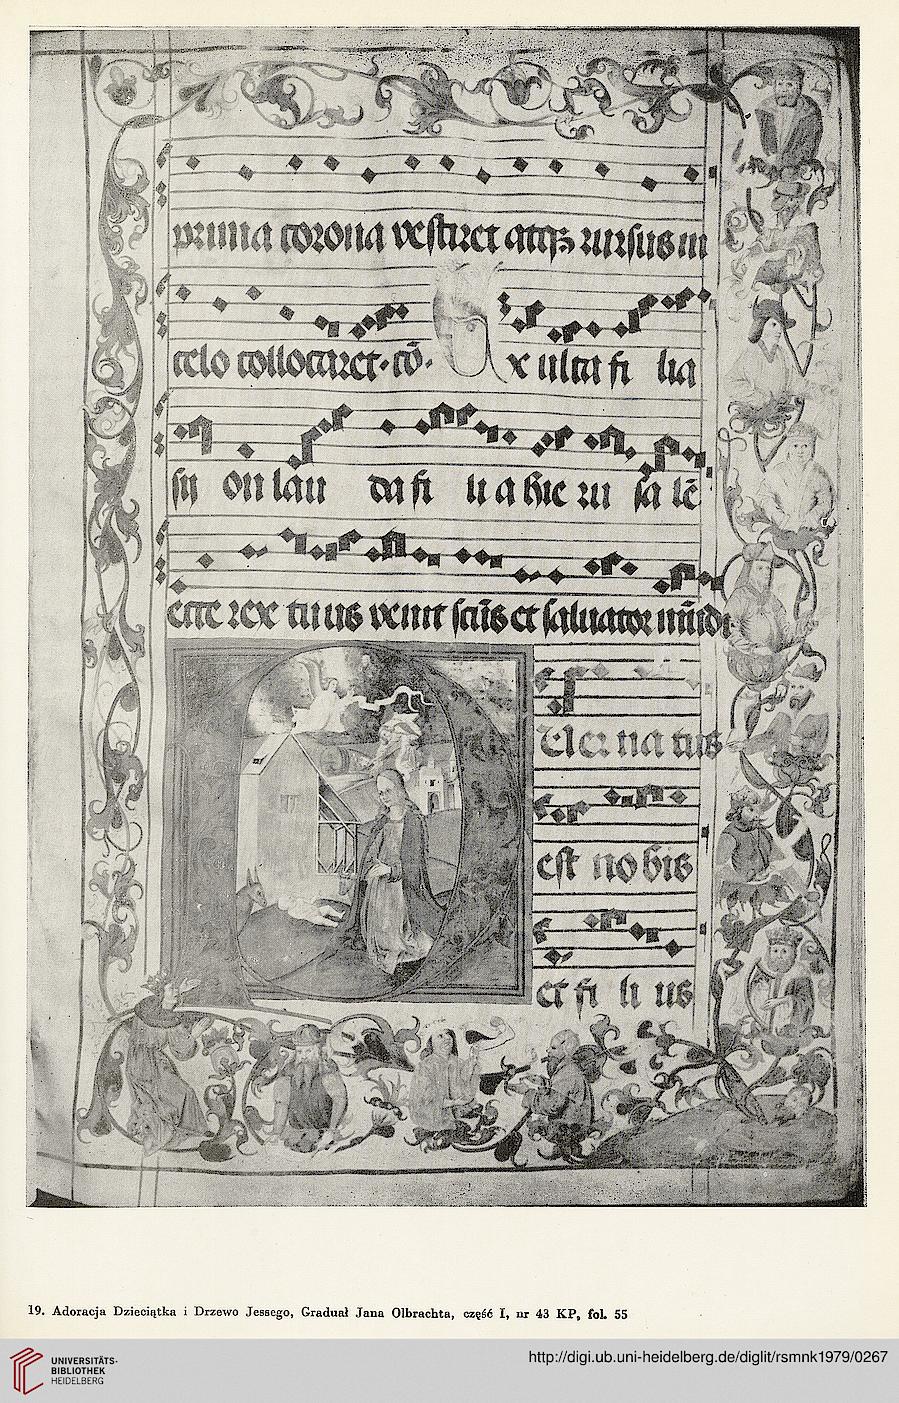 prima corona vestiret atqꝫ rursus in
celo collocaret· cō· Exulta fi lia
sy on lau da fi li a hie ru sa lē
ecce rex tuus venit scūs et saluator mūdi
Uer na tus
est nobis
et fi li us
19. Adoracja Dzieciątka i Drzewo Jessego, Graduał Jana Olbrachta, część I, nr 43 KP, fol. 55
UNIVERSITÄTS-
BIBLIOTHEK
HEIDELBERG
http://digi.ub.uni-heidelberg.de/diglit/rsmnk1979/0267